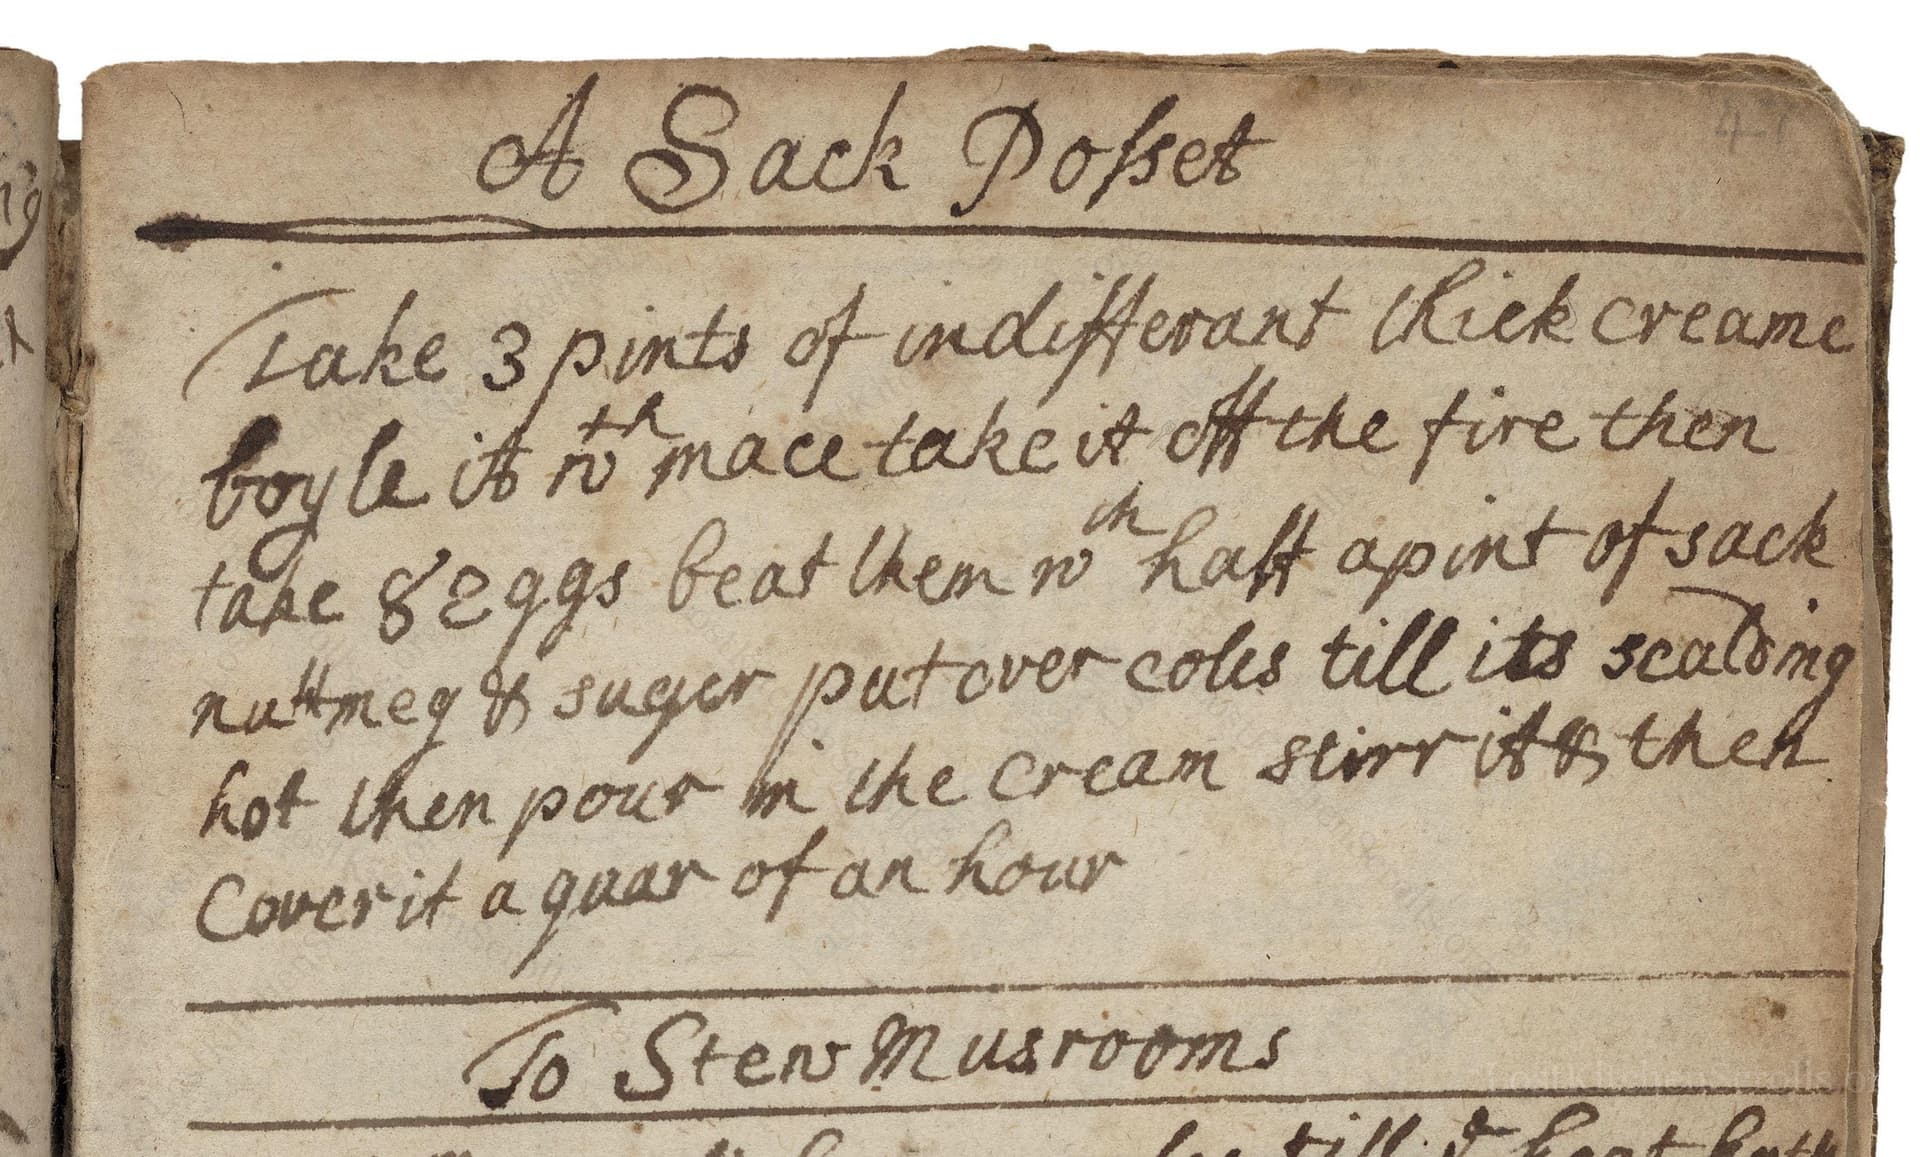 A Sack Posset
Take 3 pints of indifferant thick creame
boyle it wth mace take it off the fire then
take 8 Eggs beat them wth halff a pint of sack
nuttmeg & suger put over coles till its scalding
hot then pour in the cream stirr it & then
Cover it a quar of an hour
To Stew Musrooms
till